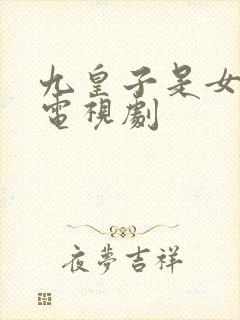 九皇子是女
電視劇
夜夢吉祥